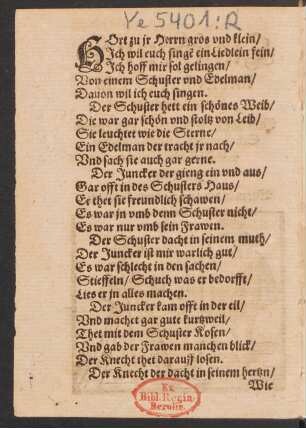 Ye 5401:R
HOrt zu jr Herrn gros vnd klein/
Ich wil euch singē ein Liedlein fein/
Ich hoff mir sol gelingen/
Von einem Schuster vnd Edelman/
Dauon wil ich euch singen.
Der Schuster hett ein schönes Weib/
Die war gar schön vnd stoltz von Leib/
Sie leuchtet wie die Sterne/
Ein Edelman der tracht jr nach/
Vnd sach sie auch gar gerne.
Der Juncker der gieng ein vnd aus/
Gar offt in des Schusters Haus/
Er thet sie freundlich schawen/
Es war jn vmb denn Schuster nicht/
Es war nur vmb sein Frawen.
Der Schuster dacht in seinem muth/
Der Juncker ist mir warlich gut/
Es war schlecht in den sachen/
Stieffeln/ Schuch was er bedorfft/
Lies er jn alles machen.
Der Juncker kam offt in der eil/
Vnd machet gar gute kurtzweil/
Thet mit dem Schuster Kosen/
Vnd gab der Frawen manchen blick/
Der Knecht thet darauff losen.
Der Knecht der dacht in seinem hertzn/
Wie
Ex
Bibl. Regia
Berolin.